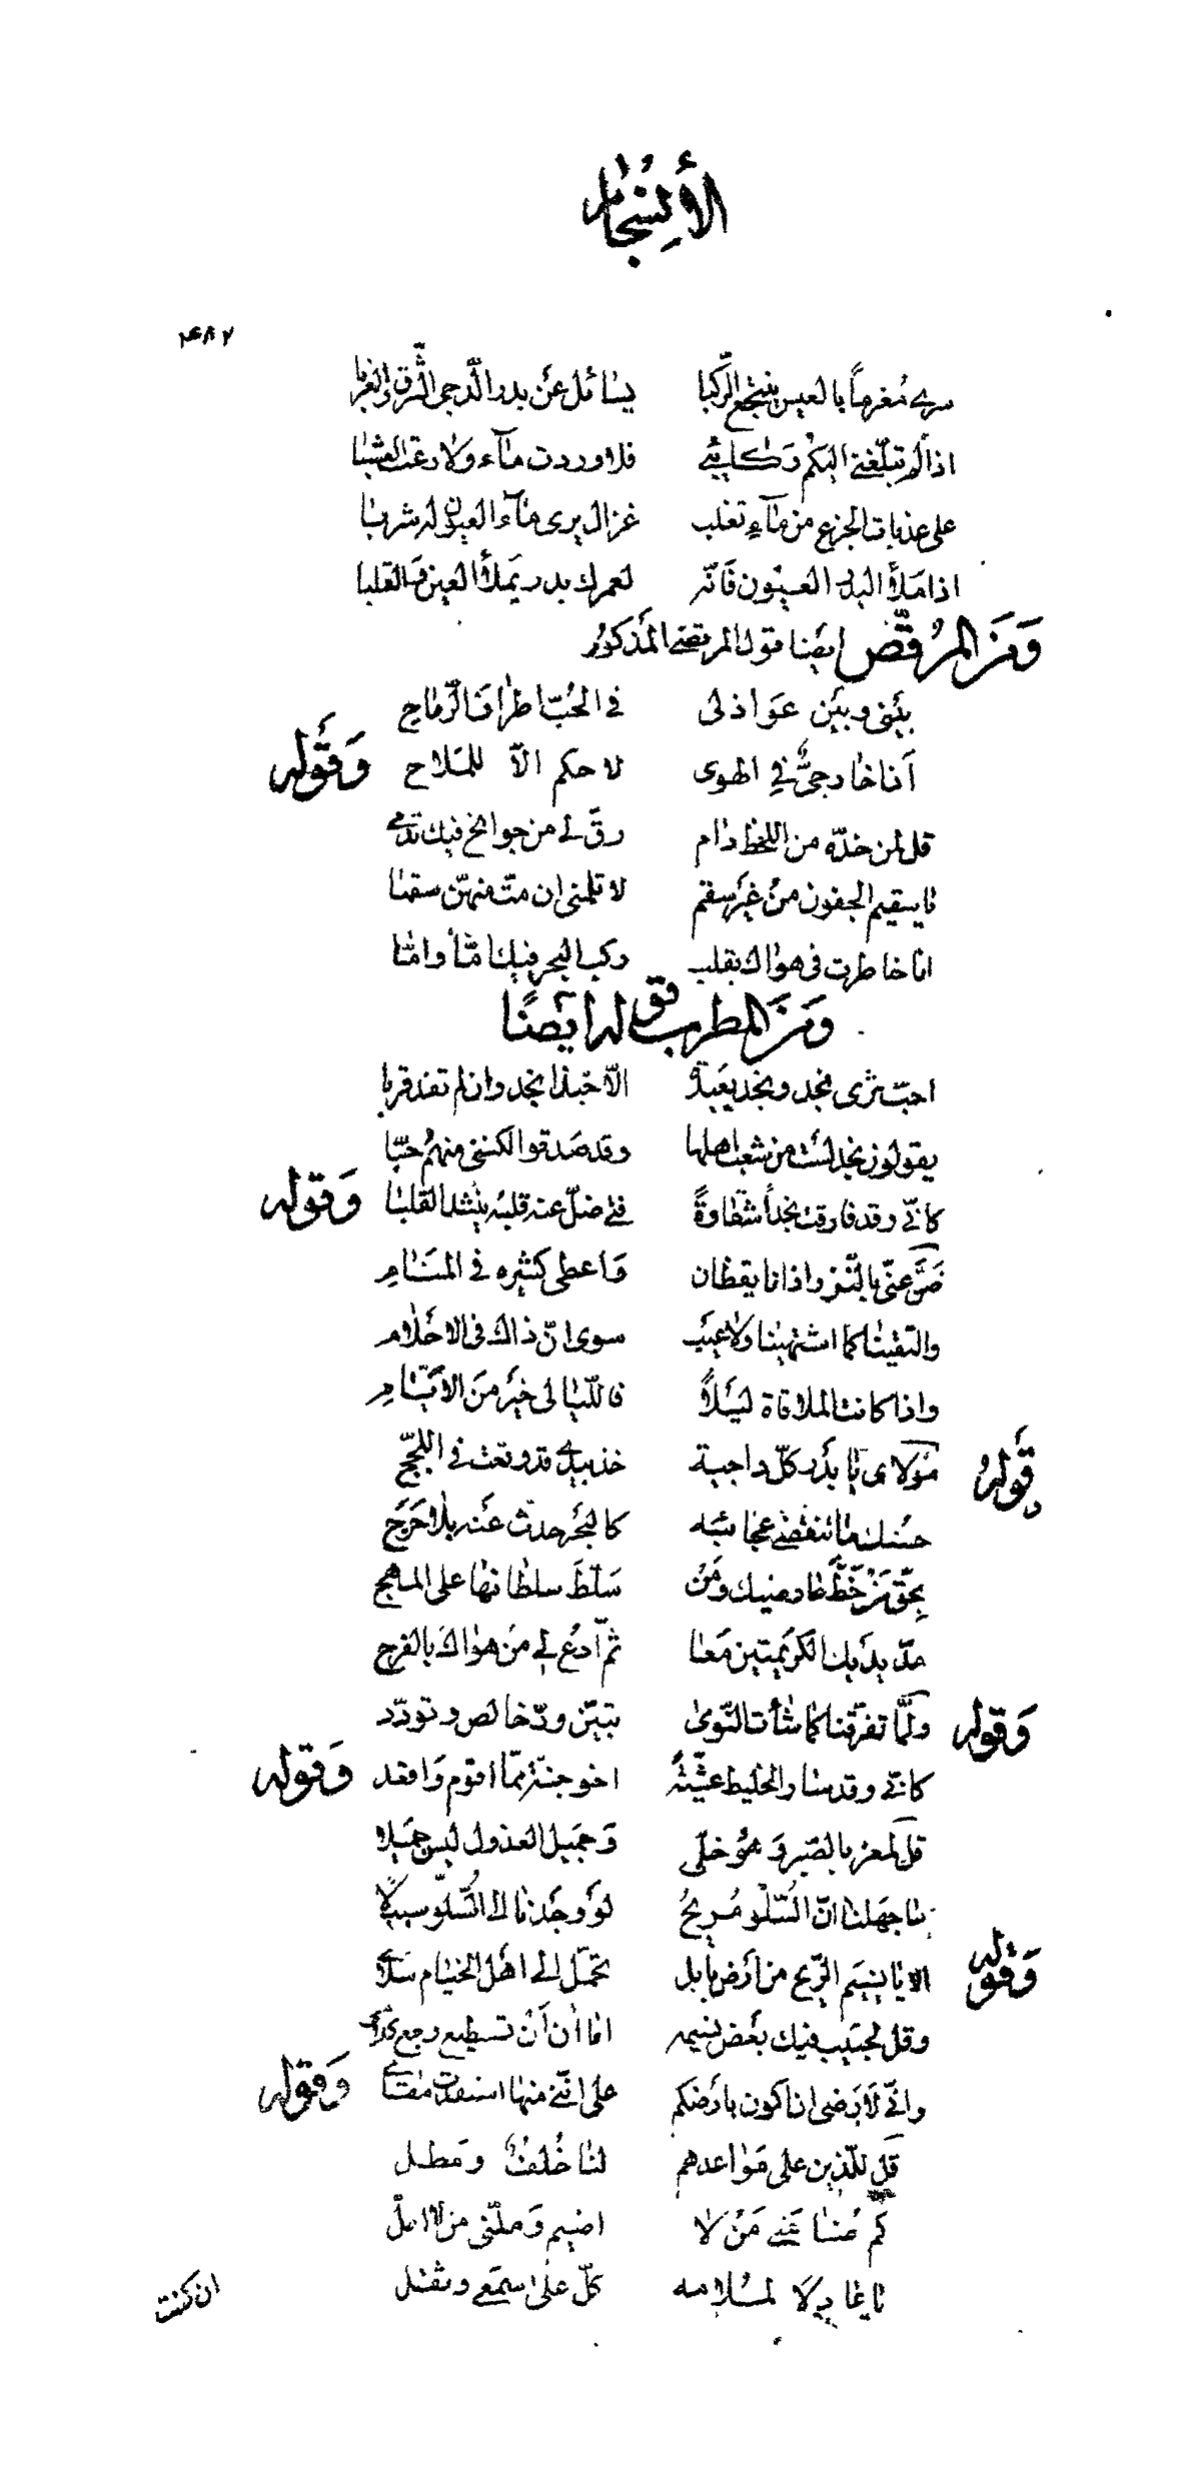 الأنسجام
۴۸۷
سرى مغرماً بالعيس ينتجع الرّكبا يسائل عن بدر الدّجى الشّرق والغربا
اذا لم تبلّغنى اليكم ركائبى فلا وردت مآء ولا رعت العشبا
على عذبات الجزع من مآء تغلب غزال يرى مآء العيون له شربا
اذا ملأ البدر العيون فانّه لعمرك بدر يملأ العين والقلبا
ومن المرقّص ايضا قول المرتضى المذكور
بينى وبين عواذلى فى الحبّ اطراف الرّماح
أنا خارجىّ فى الهوى لا حكم الاّ للملاح وقوله
قل لمن خدّه من اللحظ دام رقّ لى من جوانح فيك تدمى
يا سقيم الجفون من غير سقم لا تلمنى ان متّ منهنّ سقما
انا خاطرت فى هواك بقلب ركب البحر فيك امّا وامّا
ومن المطرب قوله ايضًا
احبّ ثرى نجد ونجد بعيدة الاّ حبّذا نجد وان لم تفد قربا
يقولون نجد لست من شعب اهلها وقد صدقوا لكننى منهم حبّا
كانّى وقد فارقت نجداً شقاوةً فتى ضلّ عنه قلبه ينشد القلبا وقوله
ضنّ عنّى بالنّزر اذ انا يقظان واعطى كثيره فى المنام
والتقينا كما اشتهينا ولا عيب سوى انّ ذاك فى الاحلام
واذا كانت الملاقاة ليلاً فاللّيالى خير من الأيّام
وقوله مولاى يا بدر كلّ داجية خذ بيدى قد وقعت فى اللجج
حسنك ما تنقضى عجائبه كالبحر حدّث عنه بلا حرج
بحقّ من خطّ عارضيك ومن سلّط سلطانها على المهج
مدّ يديك الكريمتين معا ثمّ ادع لى من هواك بالفرج
وقوله ولمّا تفرّقنا كما شأت النّوى تبيّن ودّ خالص وتودّد
كانّى وقد سار الخليط عشيّةً اخو جنّة ممّا اقوم واقعد وقوله
قل لمعز بالصبر وهو خلّى وجميل العذول ليس جميلا
ما جهلنا انّ السّلو مريحُ لو وجدنا الى السّلوّ سبيلا
وقوله الا يا نسيم الرّيح من ارض بابل تحمّل الى اهل الخيام سلامى
وقل لحبيب فيك بعض نسيمه اما ان أن تسطيع رجع كلامى
وانّى لأرضى ان اكون بارضكم على انّنى منها استفدت سقامى وقوله
قل للّذين على مواعدهم لنا خُلفٌ ومطل
كم ضامنى من لا اضيم وملّنى من لا املّ
يا عاذلا لملامه كلّ على سمعى وثقل
ان كنت